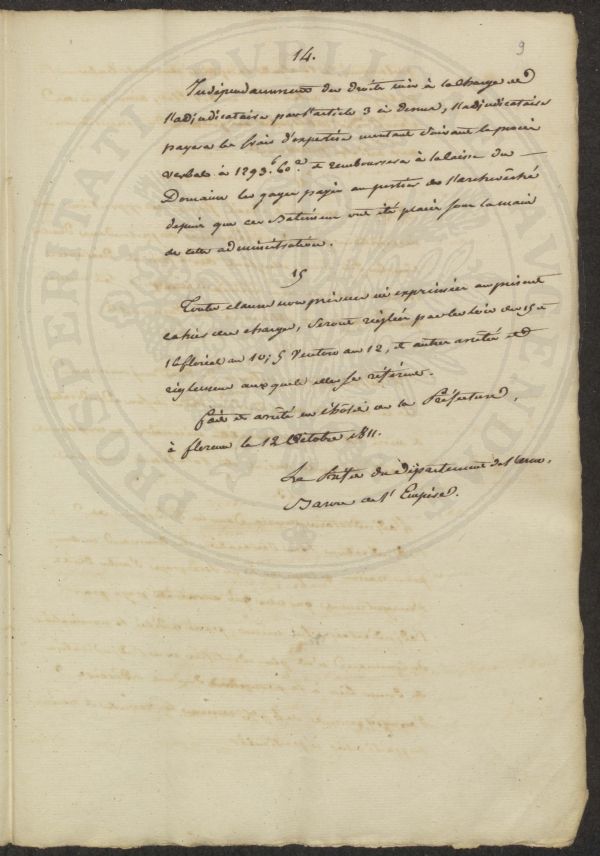 9
14.
Indépendamment des droits mis à la charge de
l'adjudicataire par l'article 3 ci dessus, l'adjudicataire
payera les frais d'expertise montant suivant le procès
verbal à 1293.f 60.c et remboursera à la Caisse du
Domaine les gages payés au portier de l'archevêché
depuis que ces Batimens ont été placés sous la main
de cette administration.
15
Toute clause non prévue ni exprimée au présent
cahier des charges, seront réglées par les lois des 15 et
16 floréal an 10; 5 Ventose an 12, et autres arrêtés et
règlemens auxquels elles se réfèrent.
fait et arrêté en l'hôtel de la Préfecture,
à florence le 12 Octobre 1811.
Le Préfet du département de l'arno,
Baron de l'Empire.
PROSPERITATI PUBLICAE